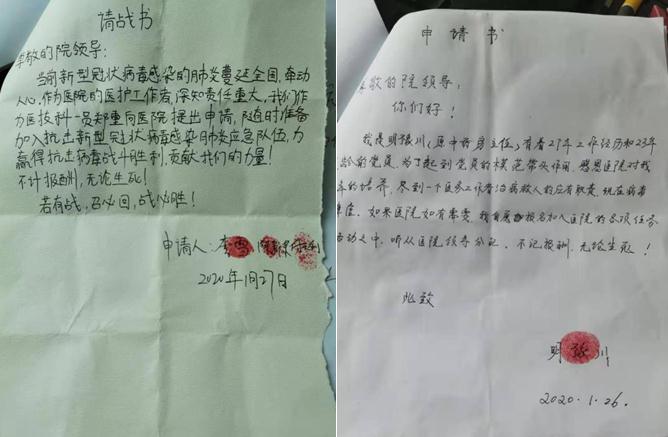 请战书
敬的院领导：
当前新型冠状病毒感染的肺炎蔓延全国，牵动
人心，作为医院的医护工作者，深知责任重大，我们作
为医技科一员郑重向医院提出申请，随时准备
加入抗击新型冠状病毒感染肺炎应急队伍，为
赢得抗击病毒战斗胜利，贡献我们的力量！
不计报酬，无论生死！
若有战，召必回，战必胜！
申请人：李雪
2020年1月27日
申请书
敬的院领导，
你们好！
我是明 川（原中药房主任，有着27年工作经历和23年
龄的党员，为了起到党员的模范带头作用，感恩医院对我
年的培养，尽到一个医务工作者治病救人的应有职责，现在病毒
，如果医院如有需要，我自愿 报名加入医院的各项任务
活动之中，听从医院领导分配，不记报酬，无论生死！
此致
明 川
2020.1.26.